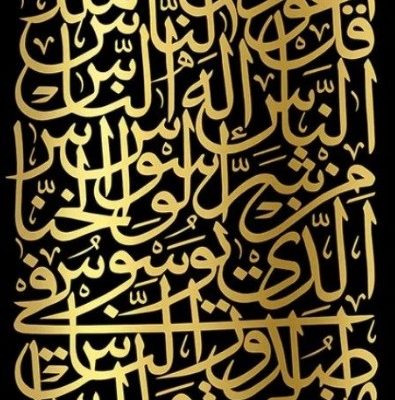 قُلْ أَعُوذُ النَّاسِ مَلِكِ
النَّاسِ إِلَهِ النَّاسِ
مِنْ شَرِّ الْوَسْوَاسِ الْخَنَّاسِ
الَّذِي يُوَسْوِسُ فِي
صُدُورِ النَّاسِ